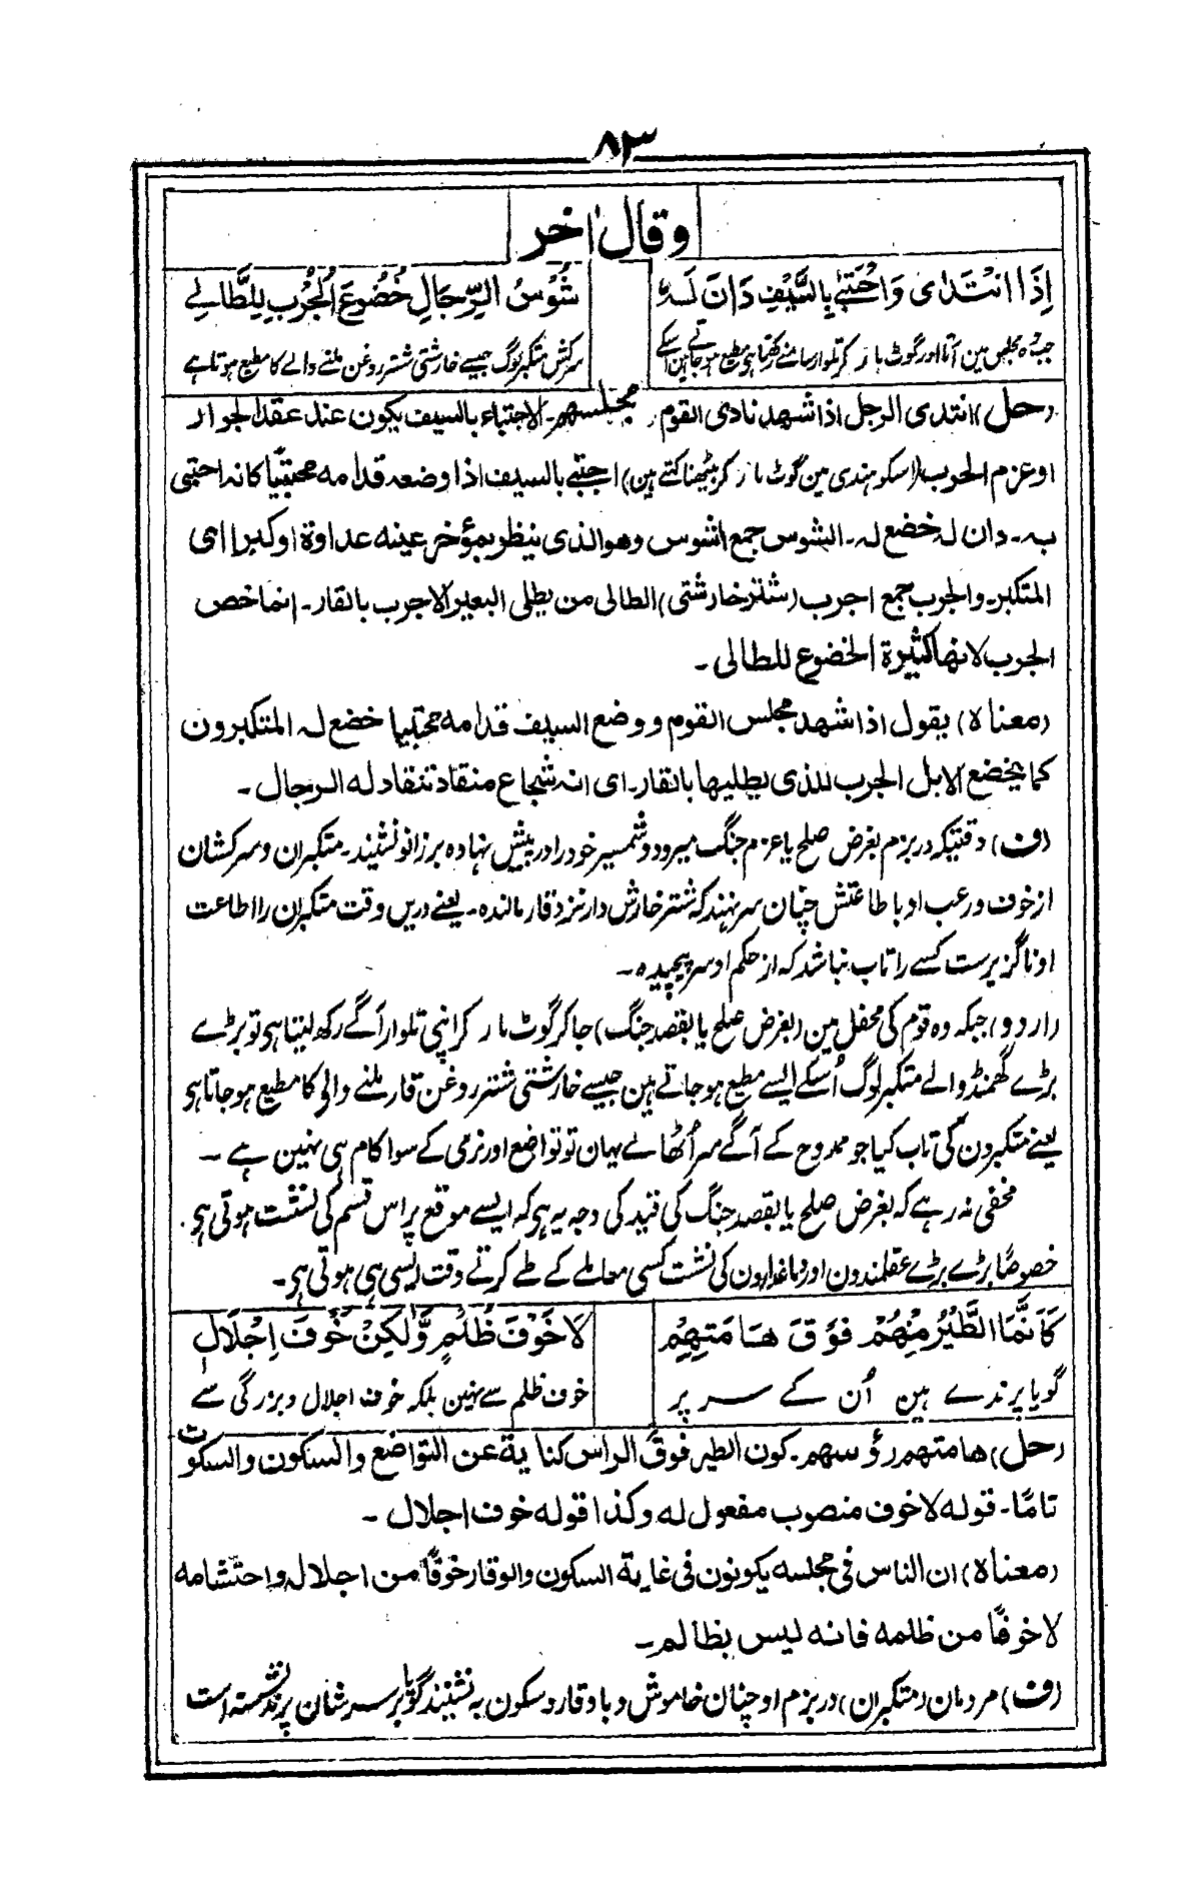 ۸۳
وقال اٰخر
اِذَا انْتَدٰى وَاحْتَبٰے بِالسَّیْفِ دَانَ لَہٗ شُوْسُ الرِّجَالِ خُضُوْعَ الْجُرْبِ لِلطَّالِے
جب وہ مجلس مین آتا اور گوٹ مار کر تلوار سامنے رکھتا ہی مطیع ہو جاتے ہین اسکے سرکش متکبر لوگ جیسے خارشتی شتر روغن ملنے والے کا مطیع ہوتا ہے
(حل) انتدی الرجل اذا شہد نادی القوم مجلسہم۔ الاحتباء بالسیف یکون عند عقد الجوار
او عزم الحرب (اسکو ہندی مین گوٹ مار کر بیٹھنا کہتے ہین) احتبےٰ بالسیف اذا وضعہ قدامہ محتبیًا کانہ احتبی
بہ۔ دان لہ خضع لہ۔ الشوس جمع اشوس وھو الذی ینظر بمؤخر عینہ عداوۃ او کبرا ای
المتکبر۔ والجرب جمع اجرب (شتر خارشتی) الطالی من یطلی البعیر الاجرب بالقار۔ انما خص
الجرب لانھا کثیرۃ الخضوع للطالی۔
(معناہ) یقول اذا شہد مجلس القوم ووضع السیف قدامہ محتبیا خضع لہ المتکبرون
کما یخضع الابل الجرب للذی یطلیھا بالقار۔ ای انہ شجاع منقاد تنقاد لہ الرجال۔
(ف) وقتیکہ در بزم بغرض صلح یا عزم جنگ میرود و شمشیر خود را در پیش نہادہ بر زانو نشیند۔ متکبران و سرکشان
از خوف و رعب او باطاعتش چنان سر نہند کہ شتر خارش دار نزد قار مالندہ۔ یعنے دریں وقت متکبران را اطاعت
او ناگزیرست کسے را تاب نباشد کہ از حکم او سر پیچیدہ۔
(اردو) جبکہ وہ قوم کی محفل مین (بغرض صلح یا بقصد جنگ) جا کر گوٹ مار کر اپنی تلوار آگے رکھ لیتا ہی تو بڑے
بڑے گھمنڈ والے متکبر لوگ اُسکے ایسے مطیع ہو جاتے ہین جیسے خارشتی شتر روغن قار ملنے والی کا مطیع ہو جاتا ہو
یعنے متکبرون کی تاب کیا جو ممدوح کے آگے سر اُٹھائے یہان تو تواضع اور نرمی کے سوا کام ہی نہین ہے ۔
مخفی نہ رہے کہ بغرض صلح یا بقصد جنگ کی قید کی وجہ یہ ہو کہ ایسے موقع پر اس قسم کی نشست ہوتی ہو۔
خصوصًا بڑے بڑے عقلمندون اور دماغدارون کی نشست کسی معاملے کے طے کرتے وقت ایسی ہی ہوتی ہی۔
کَاَنَّمَا الطَّیْرُ مِنْھُمْ فَوْقَ ھَامَتِھِمْ لَا خَوْفَ ظُلْمٍ وَّلٰکِنْ خَوْفَ اِجْلَالِ
گویا پرندے ہین اُن کے سر پر خوف ظلم سے نہین بلکہ خوف اجلال و بزرگی سے
(حل) ھامتھم رؤسھم۔ کون الطیر فوق الراس کنایۃ عن التواضع والسکون والسکوت
تامًا۔ قولہ لا خوف منصوب مفعول لہ وکذا قولہ خوف اجلال ۔
(معناہ) ان الناس فی مجلسہ یکونون فی غایۃ السکون والوقار خوفًا من اجلالہ واحتشامہ
لا خوفًا من ظلمہ فانہ لیس بظالم۔
(ف) مردمان (متکبران) در بزم او چنان خاموش و باوقار و سکون بہ نشینند گویا بر سر شان پرند نشستہ است